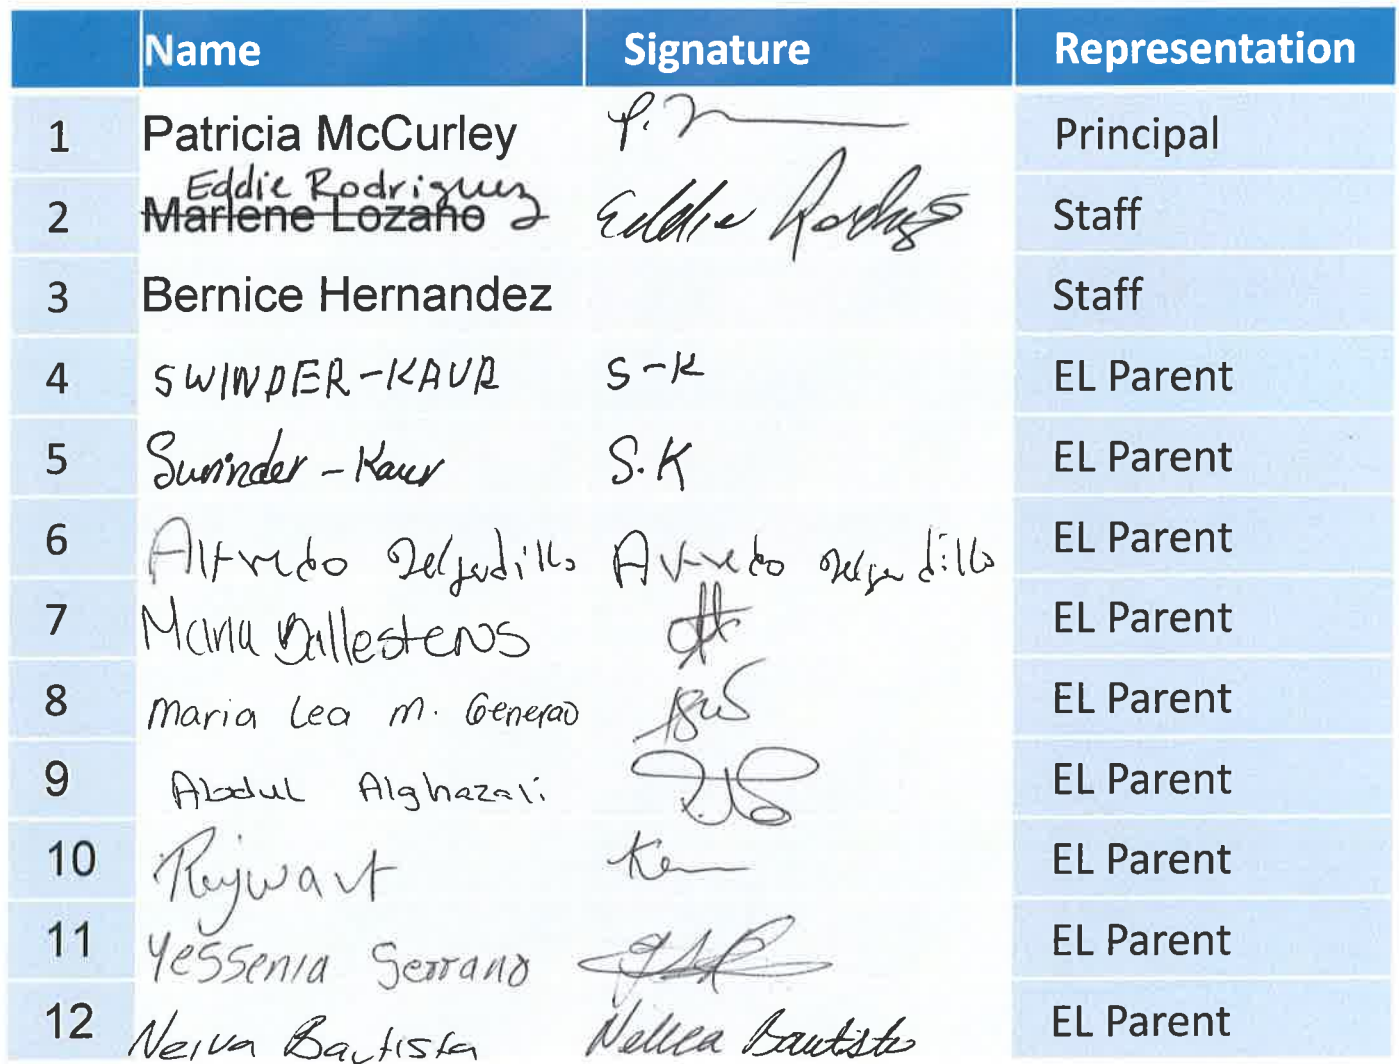 Name Signature Representation
1 Patricia McCurley P. Principal
Eddie Rodriguez
2 Marlene Lozano Eddie Rodrigz Staff
3 Bernice Hernandez Staff
4 SWINDER-KAUR S-K EL Parent
5 Surinder - Kaur S.K EL Parent
6 Alfredo Delgadillo Alfredo Delgadillo EL Parent
7 Maria Ballesteros EL Parent
8 Maria Lea M. Generao EL Parent
9 Abdul Alghazali EL Parent
10 EL Parent
11 Yessenia Serrano EL Parent
12 Neiva Bautista Bautista EL Parent